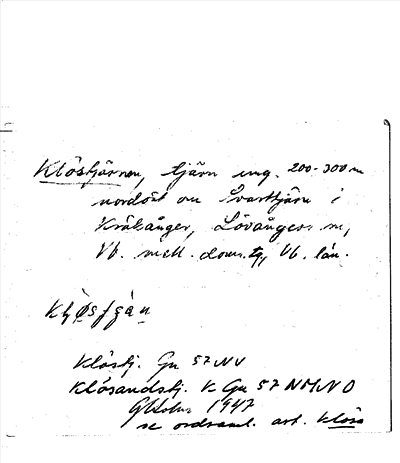 Klöstjärnen, tjärn ung. 200-300 m
nordost om Svarttjärn i
Kråkånger, Lövångers sn,
Vb. mell. doms. tg, Vb. län.
Klöstj. Gu 57 NV
Klösandstj. K Gu 57 NMNO
1947
se ordsaml. art. Klösa